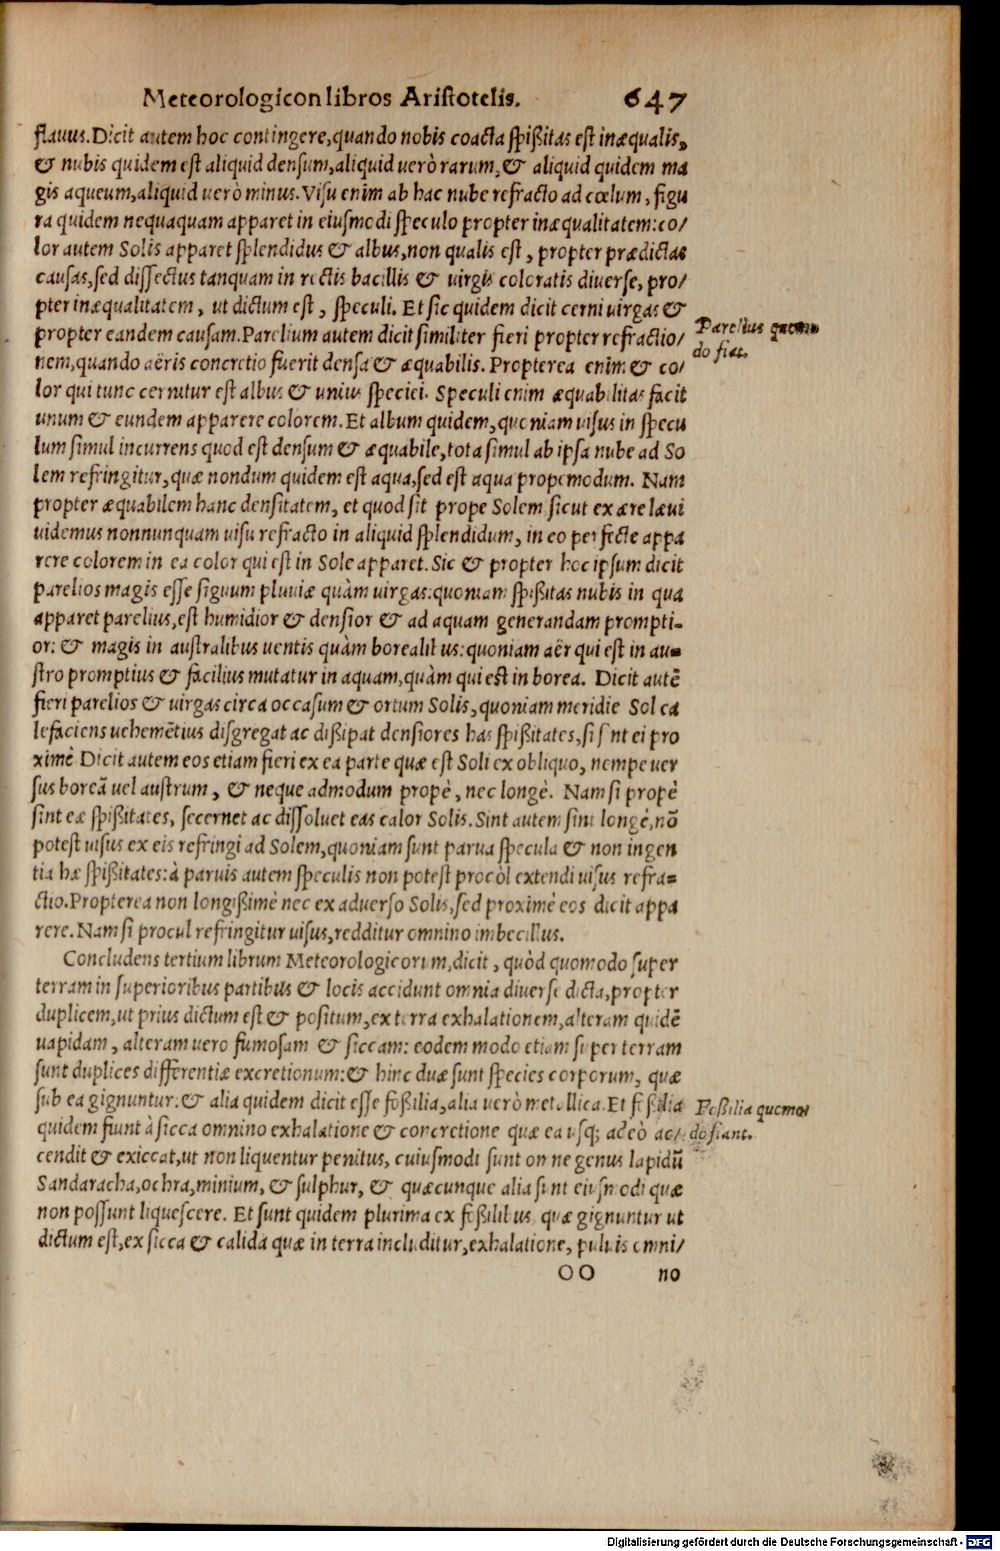 Meteorologicon libros Aristotelis. 647
flavus. Dicit autem hoc contingere, quando nobis coacta spißitas est inæqualis,
& nubis quidem est aliquid densum, aliquid uerò rarum, & aliquid quidem ma
gis aqueum, aliquid uerò minus. Visu enim ab hac nube refracto ad cœlum, figu
ra quidem nequaquam apparet in eiusmodi speculo propter inæqualitatem: co/
lor autem Solis apparet splendidus & albus, non qualis est, propter prædictas
causas, sed dissectus tanquam in rectis bacillis & uirgis coloratis diuerse, pro/
pter inæqualitatem, ut dictum est, speculi. Et sic quidem dicit cerni uirgas &
propter eandem causam. Parelium autem dicit similiter fieri propter refractio/
Parelius quemo
nem, quando aëris concretio fuerit densa & æquabilis. Propterea enim & co/
do fiat.
lor qui tunc cernitur est albus & unius speciei. Speculi enim æquabilitas facit
unum & eundem apparere colorem. Et album quidem, quoniam uisus in specu
lum simul incurrens quod est densum & æquabile, tota simul ab ipsa nube ad So
lem refringitur, quæ nondum quidem est aqua, sed est aqua propemodum. Nam
propter æquabilem hanc densitatem, et quod sit prope Solem sicut ex ære læui
uidemus nonnunquam uisu refracto in aliquid splendidum, in eo perfecte appa
rere colorem in ea color qui est in Sole apparet. Sic & propter hoc ipsum dicit
parelios magis esse signum pluuiæ quàm uirgas: quoniam spißitas nubis in qua
apparet parelius, est humidior & densior & ad aquam generandam prompti-
or: & magis in australibus uentis quàm borealibus: quoniam aër qui est in au-
stro promptius & facilius mutatur in aquam, quàm qui est in borea. Dicit autē
fieri parelios & uirgas circa occasum & ortum Solis, quoniam meridie Sol ca
lefaciens uehemētius disgregat ac dißipat densiores has spißitates, si sint ei pro
ximè Dicit autem eos etiam fieri ex ea parte quæ est Soli ex obliquo, nempe uer
sus boreā uel austrum, & neque admodum propè, nec longè. Nam si propè
sint eæ spißitates, secernet ac dissoluet eas calor Solis. Sint autem sint longè, nō
potest uisus ex eis refringi ad Solem, quoniam sunt parua specula & non ingen
tia hæ spißitates: à paruis autem speculis non potest procòl extendi uisus refra-
ctio. Propterea non longißimè nec ex aduerso Solis, sed proximè eos dicit appa
rere. Nam si procul refringitur uisus, redditur omnino imbecillus.
Concludens tertium librum Meteorologicorum, dicit, quòd quomodo super
terram in superioribus partibus & locis accidunt omnia diuerse dicta, propter
duplicem, ut prius dictum est & positum, ex terra exhalationem, alteram quidē
uapidam, alteram uero fumosam & siccam: eodem modo etiam super terram
sunt duplices differentiæ excretionum: & hinc duæ sunt species corporum, quæ
sub ea gignuntur: & alia quidem dicit esse foßilia, alia uerò metallica. Et foßilia
Foßilia quemo
quidem fiunt à sicca omnino exhalatione & concretione quæ ea usq; adeò ac/
do fiant.
cendit & exiccat, ut non liquentur penitus, cuiusmodi sunt omne genus lapidū
Sandaracha, ochra, minium, & sulphur, & quæcunque alia sunt eiusmodi quæ
non possunt liquescere. Et sunt quidem plurima ex foßilibus quæ gignuntur ut
dictum est, ex sicca & calida quæ in terra includitur, exhalatione, puluis omni/
OO no
Digitalisierung gefördert durch die Deutsche Forschungsgemeinschaft - DFG